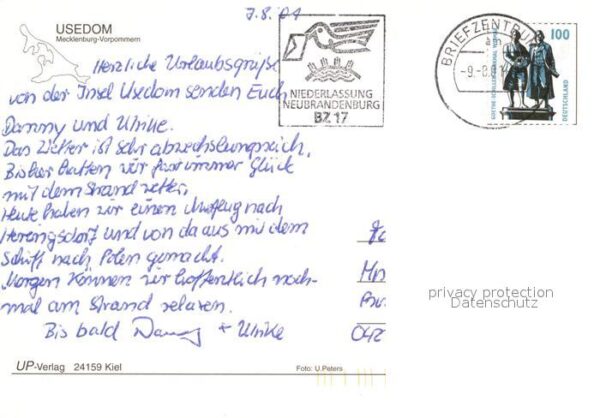 7.8.01
USEDOM
Mecklenburg-Vorpommern
Herzliche Urlaubsgrüße
von der Insel Usedom senden Euch
Danny und Ulrike.
Das Wetter ist sehr abwechslungsreich.
Bisher hatten wir fast immer Glück
mit dem Strandwetter.
Heute haben wir einen Ausflug nach
Heringsdorf und von da aus mit dem
Schiff nach Polen gemacht.
Morgen können wir hoffentlich noch-
mal am Strand relaxen.
Bis bald Danny + Ulrike
UP-Verlag 24159 Kiel
Foto: U.Peters
NIEDERLASSUNG
NEUBRANDENBURG
BZ 17
BRIEFZENTRUM
-9.-8.01
100
DEUTSCHLAND
privacy protection
Datenschutz